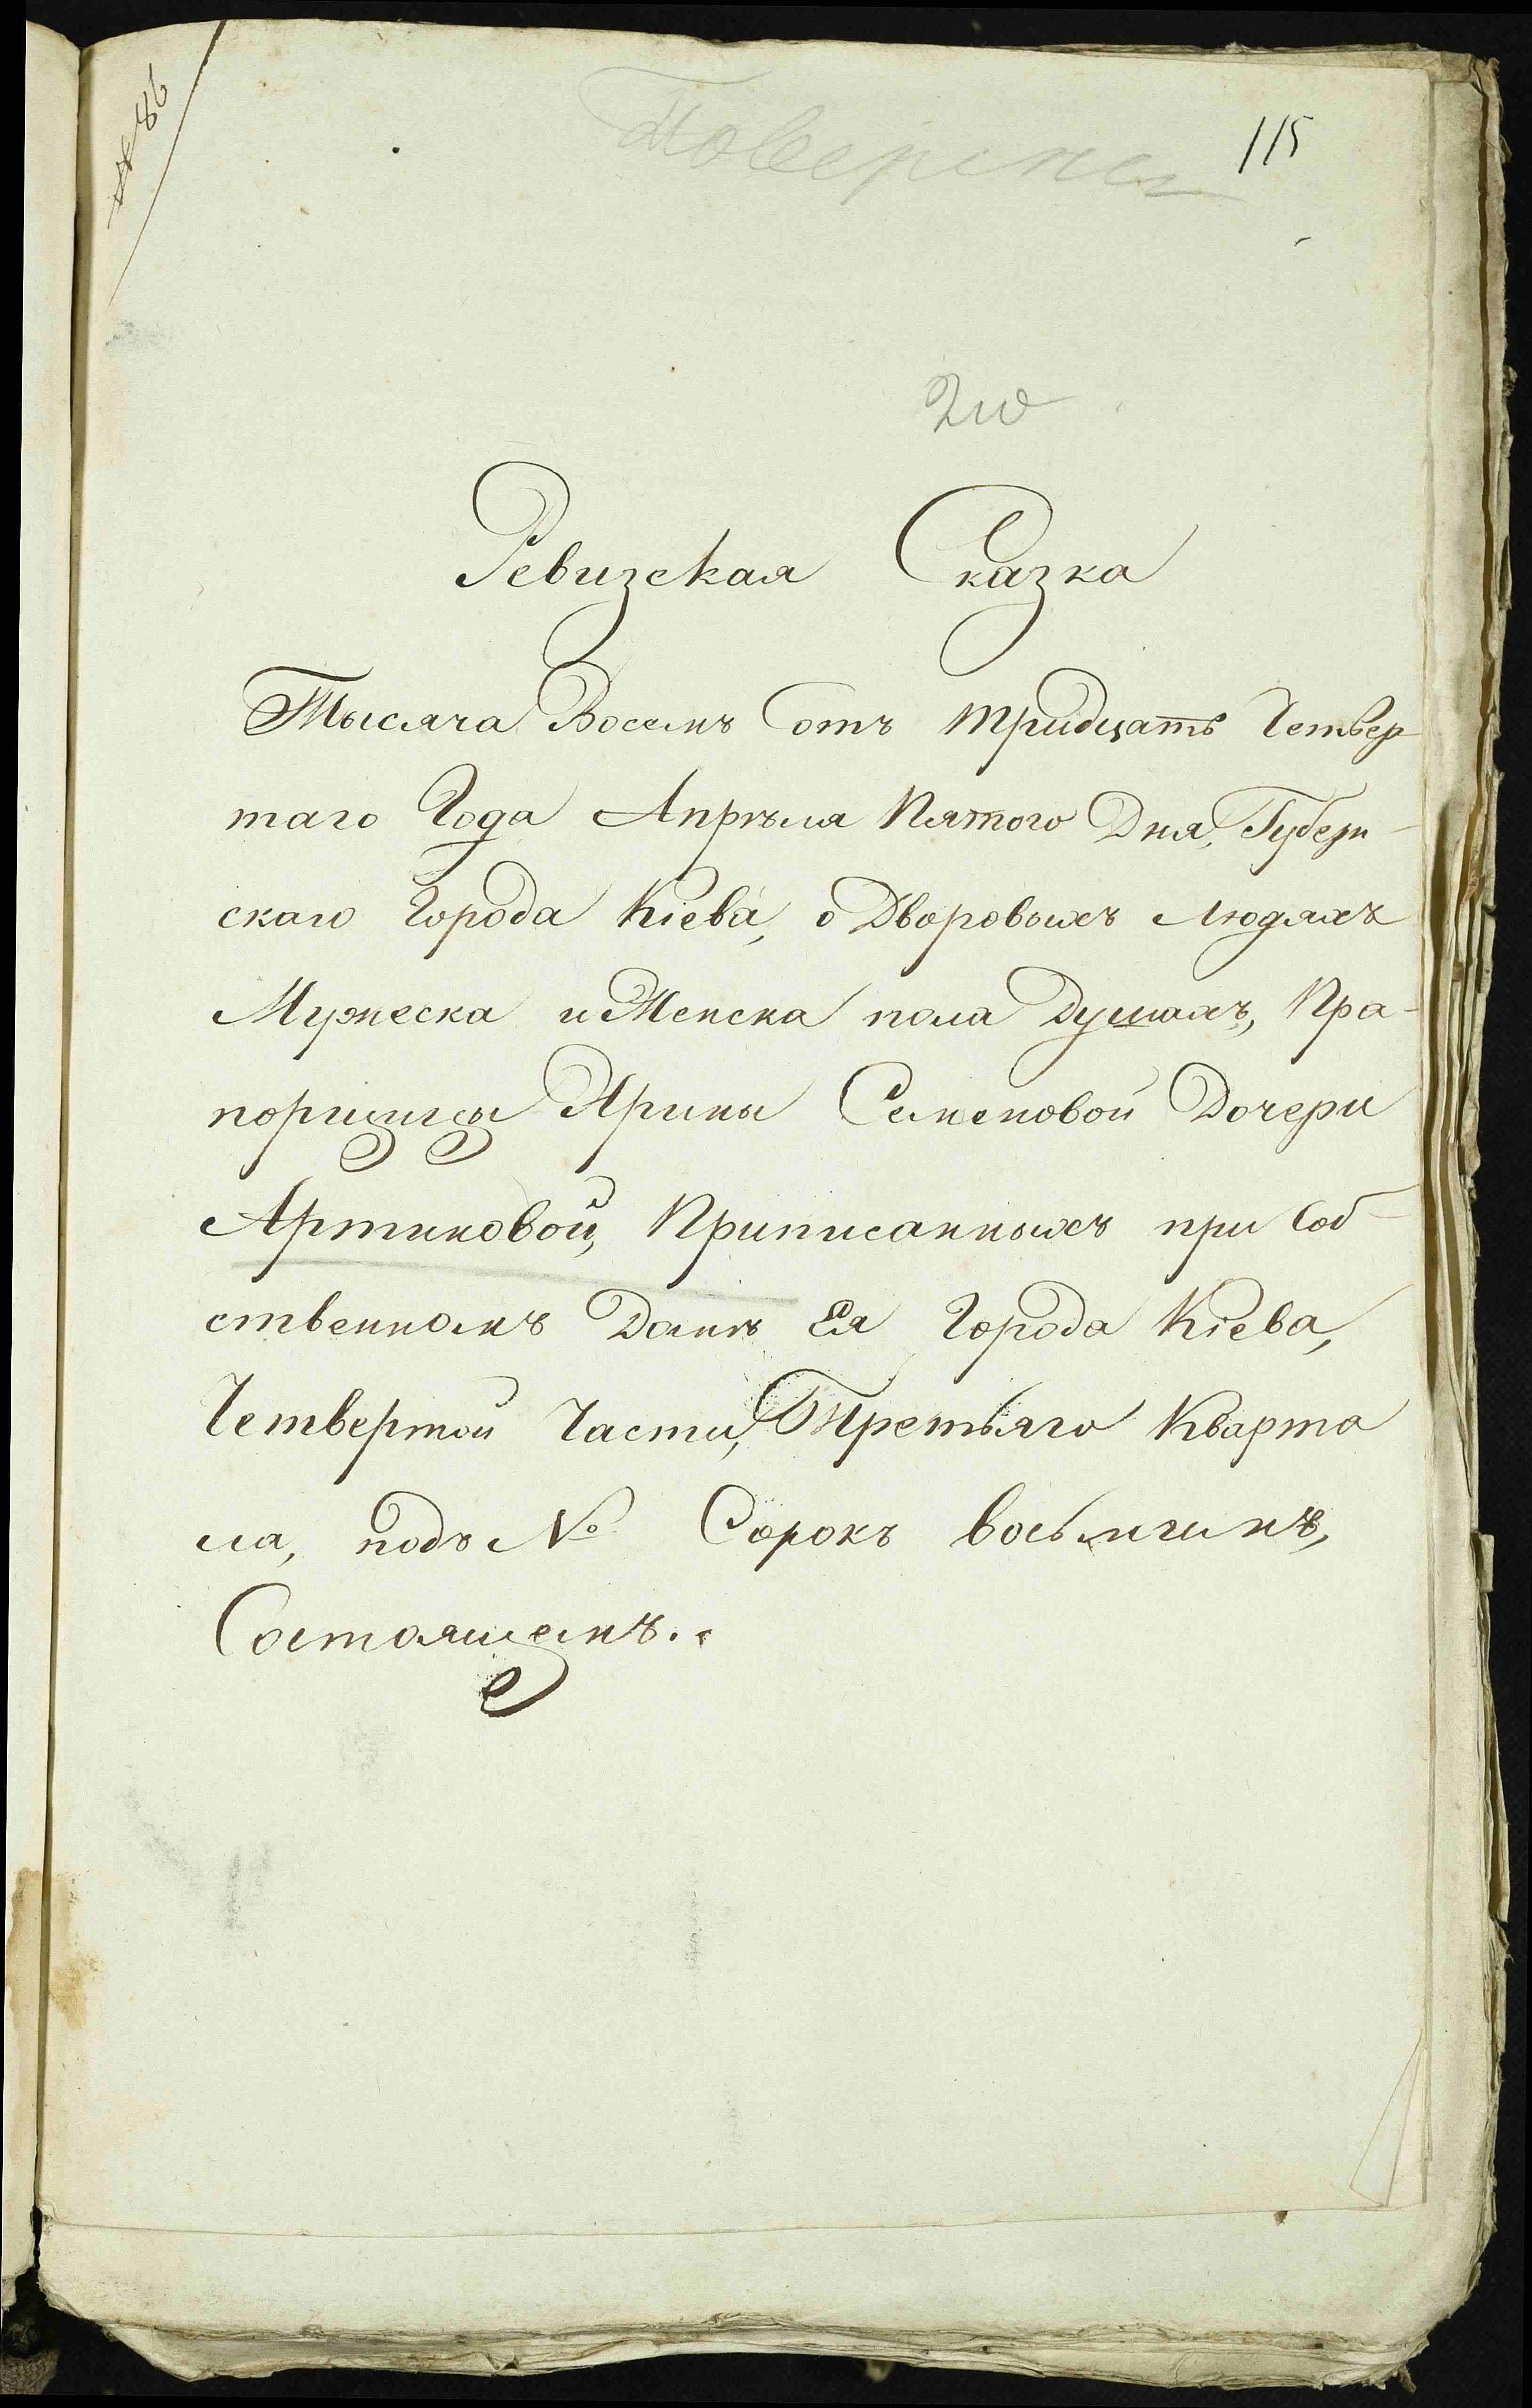 № 86
Поверена
115
Ревизская Сказка
Тысяча Восемъ Сотъ тридцать Четвер
таго Года Апрѣля Пятого Дня, Губерн-
скаго Города Кіева, о Дворовыхъ Людяхъ
Мужеска и Женска пола Душахъ, Пра-
порщицы Ирины Семеновой Дочери
Артиковой, Приписанныхъ при Соб-
ственномъ Домѣ Ея Города Кіева,
Четвертой Части, Третьяго Кварта
ла, подъ № Сорокъ восьмимъ,
Состоящемъ.